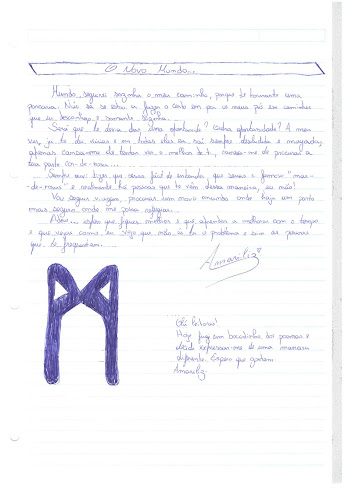 O Novo Mundo...
Mundo, seguirei sozinha o meu caminho, porque te tornaste uma
porcaria. Não sei se estou a fazer o certo em por os meus pés em caminhos
que eu desconheço e somente sozinha...
Será que te devia dar uma oportunidade? Outra oportunidade? A meu
ver, já te dei várias e em todas elas eu saí sempre desiludida e magoada,
apenas cansei-me de tentar ver o melhor de ti, cansei-me de procurar a
tua parte cor-de-rosa...
Sempre ouvi dizer que eras fácil de entender, que eras o famoso "mar-
de-rosas" e realmente há pessoas que te vêm dessa maneira, eu não!
Vou seguir viagem, procurar um novo mundo onde haja um porto
mais seguro onde me possa refugiar...
Adeus... espero que fiques melhor e que aprendas a melhorar com o tempo
e que vejas como eu vejo que não és tu o problema e sim as pessoas
que te frequentam...
Amariliz
Olá leitores!
Hoje fugi um bocadinho aos poemas e
decidi expressar-me de uma maneira
diferente. Espero que gostem.
Amariliz